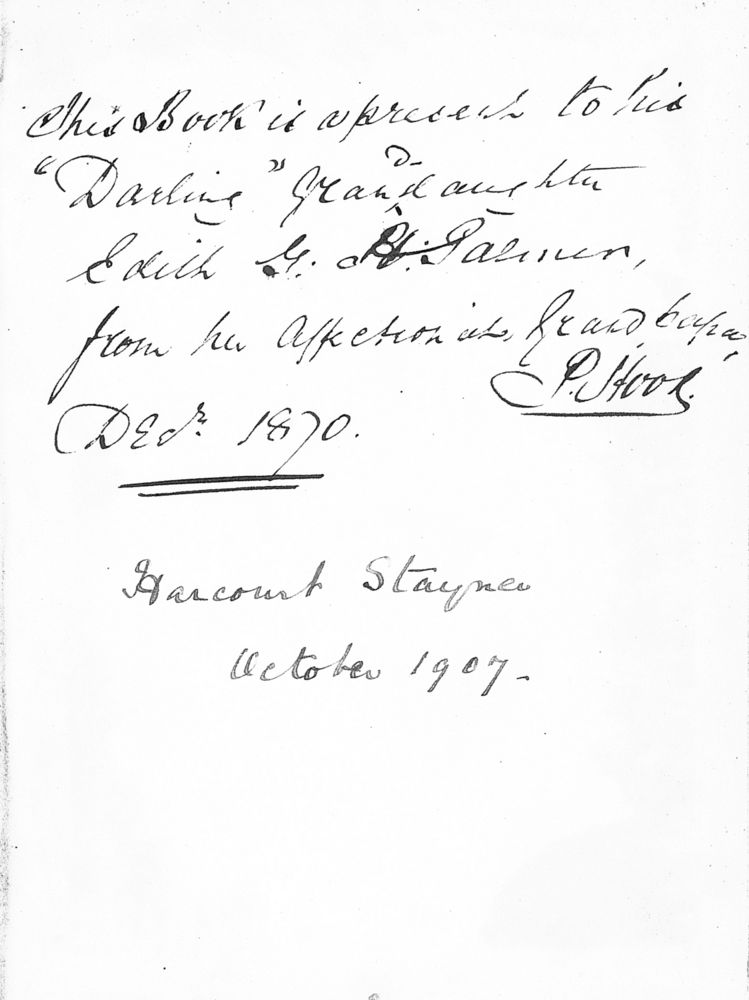 This Book is a present to his
"Darling" Grand daughter
Edith G. H. Palmer,
from her Affectionate Grand papa,
P. Hook.
Decr. 1870.
Harcourt Stayner
October 1907-